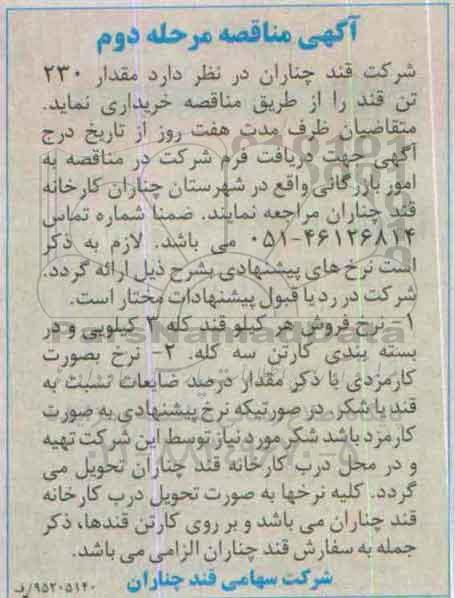 آگهی مناقصه مرحله دوم
شرکت قند چناران در نظر دارد مقدار ۲۳۰
تن قند را از طریق مناقصه خریداری نماید.
متقاضیان ظرف مدت هفت روز از تاریخ درج
آگهی جهت دریافت فرم شرکت در مناقصه به
امور بازرگانی واقع در شهرستان چناران کارخانه
قند چناران مراجعه نمایند. ضمنا شماره تماس
۰۵۱-۴۶۱۲۶۸۱۴ می باشد. لازم به ذکر
است نرخ های پیشنهادی بشرح ذیل ارائه گردد.
شرکت در رد یا قبول پیشنهادات مختار است.
۱- نرخ فروش هر کیلو قند کله ۳ کیلویی و در
ParsNamadData
بسته بندی کارتن سه کله. ۲- نرخ بصورت
کارمزدی با ذکر مقدار درصد ضایعات نسبت به
قند یا شکر. در صورتیکه نرخ پیشنهادی به صورت
کارمزد باشد شکر مورد نیاز توسط این شرکت تهیه
و در محل درب کارخانه قند چناران تحویل می
گردد. کلیه نرخها به صورت تحویل درب کارخانه
قند چناران می باشد و بر روی کارتن قندها، ذکر
جمله به سفارش قند چناران الزامی می باشد.
شرکت سهامی قند چناران
۹۵۲۰۵۱۴۰/ف